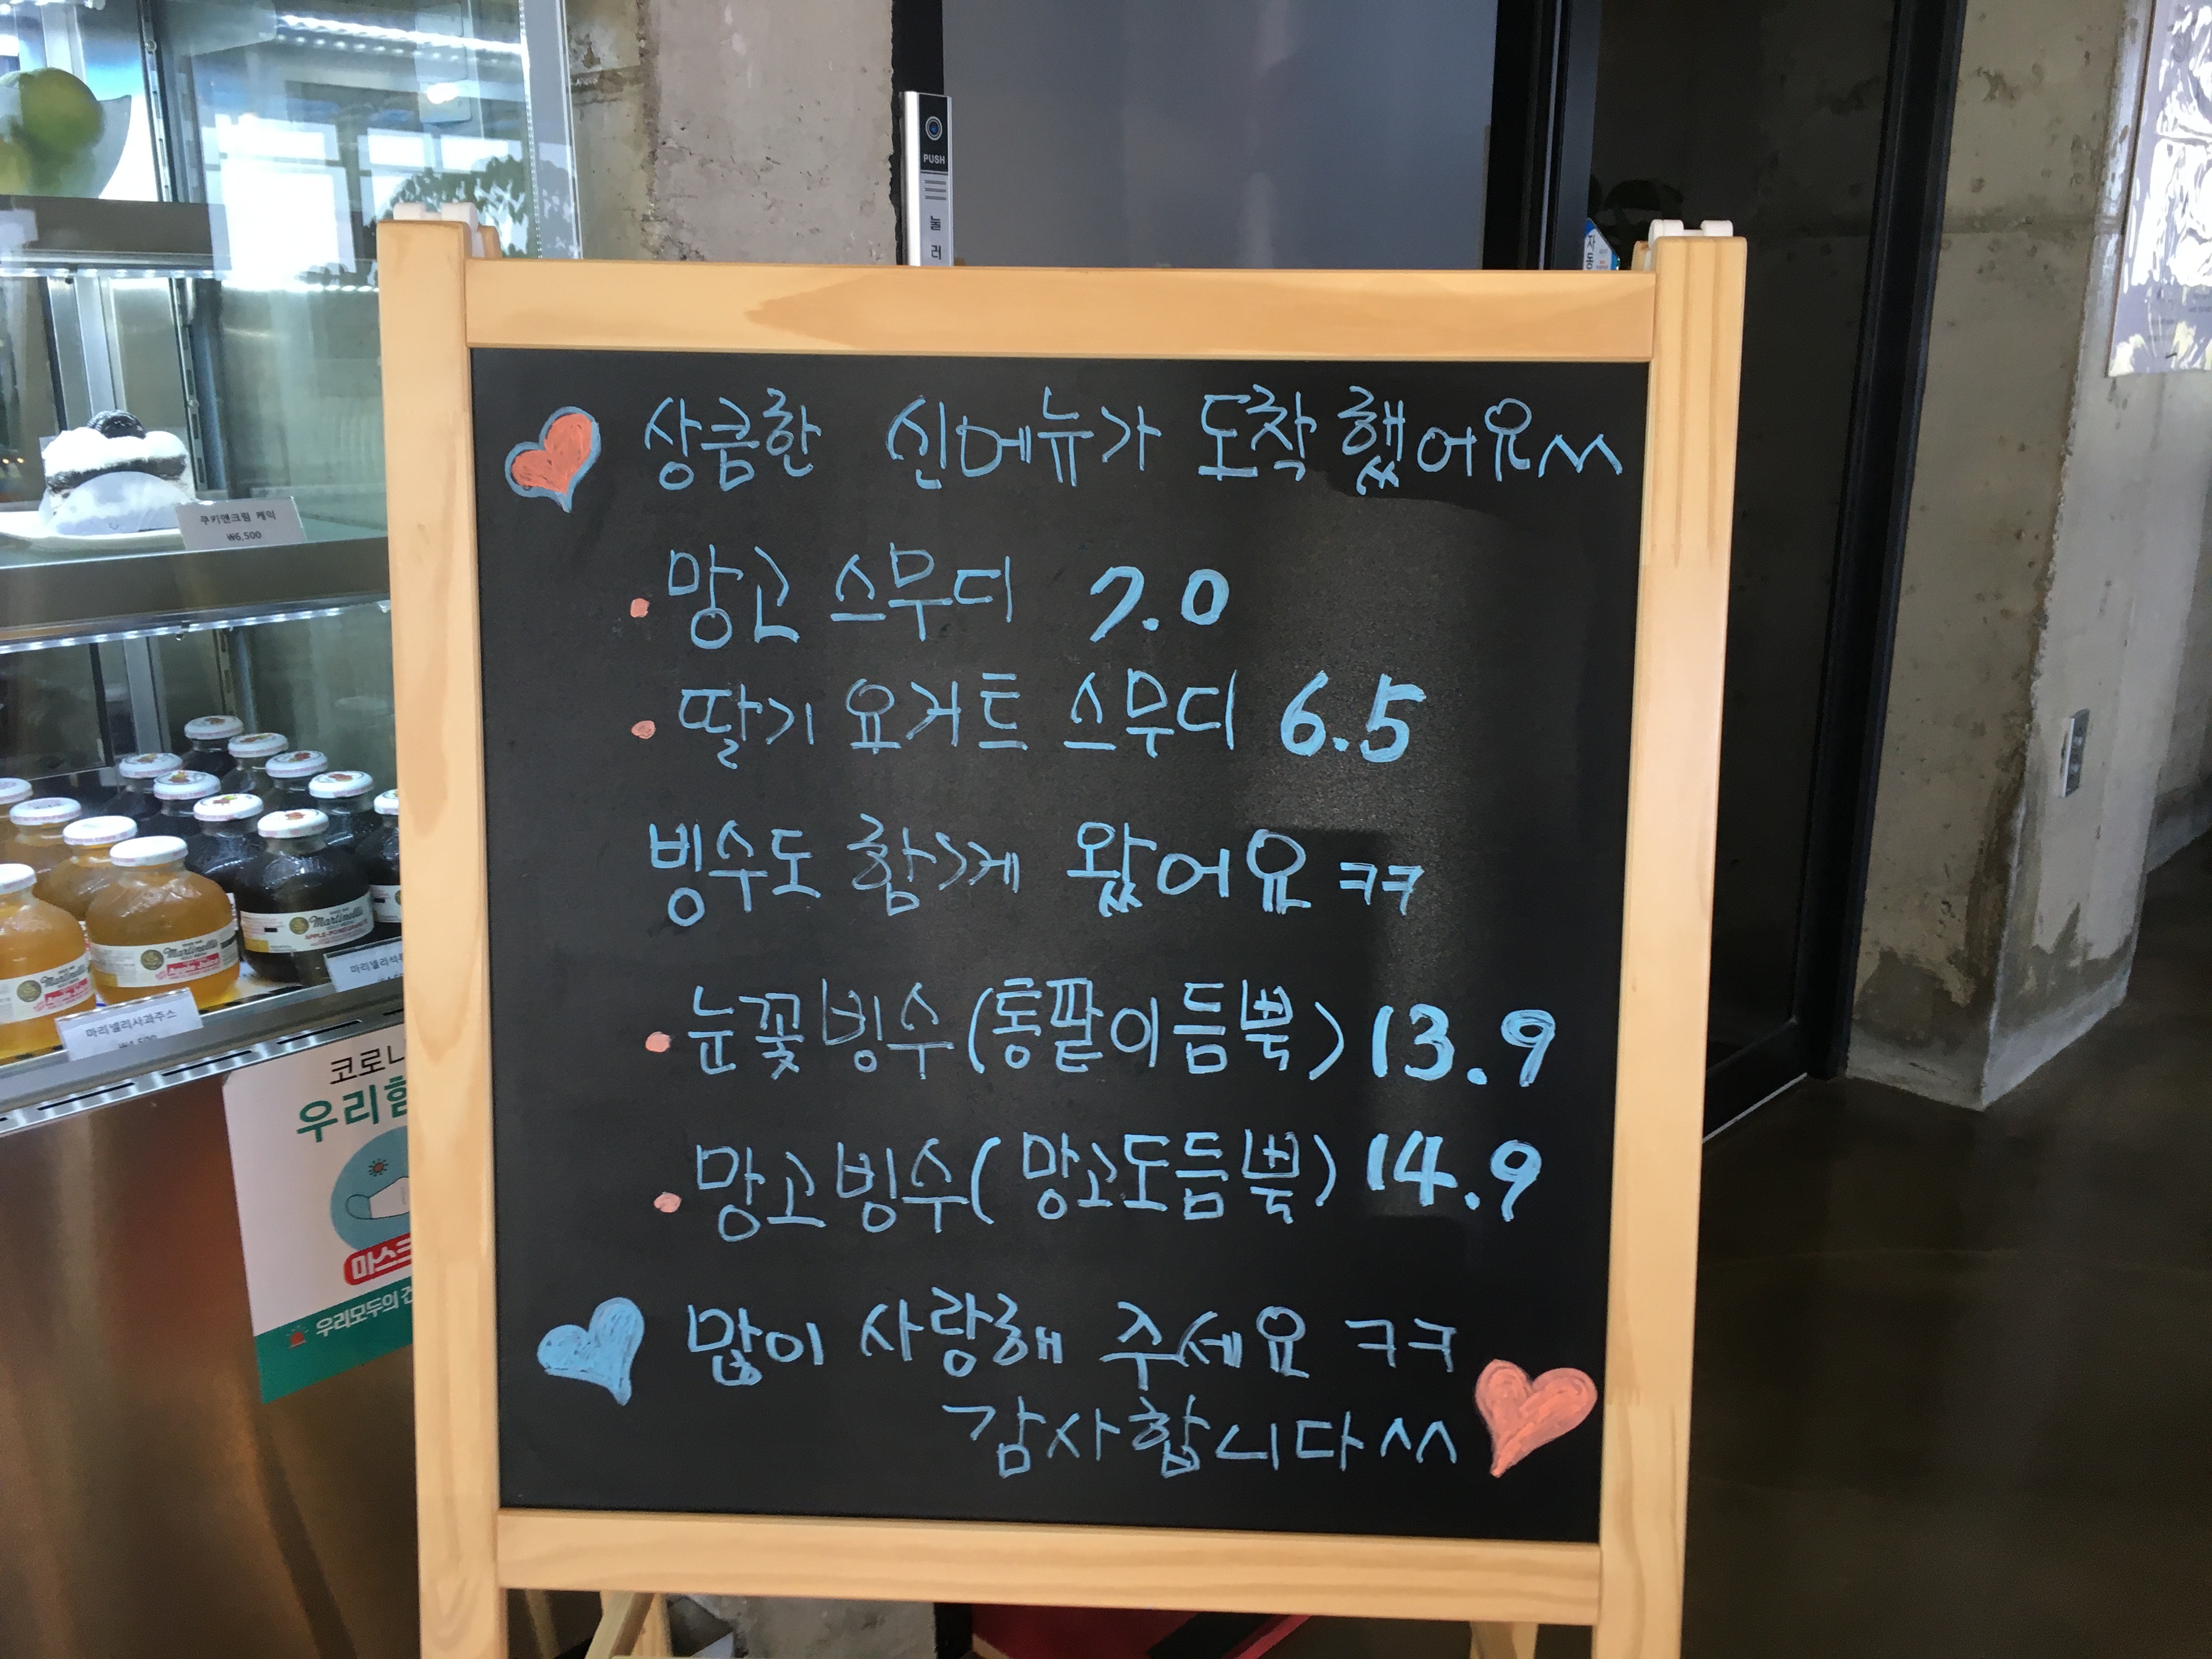 상큼한 신메뉴가 도착했어요^^
• 망고 스무디 7.0
• 딸기 요거트 스무디 6.5
빙수도 함께 왔어요 ㅋㅋ
• 눈꽃빙수(통팥이듬뿍) 13.9
• 망고빙수(망고도듬뿍) 14.9
많이 사랑해 주세요 ㅋㅋ
감사합니다^^
PUSH
눌
러
자동
쿠키앤크림 케익
₩6,500
Martinelli's
Martinelli's
마리넬리석
마리넬리사과주스
코로나
우리함
마스크
우리모두의 건